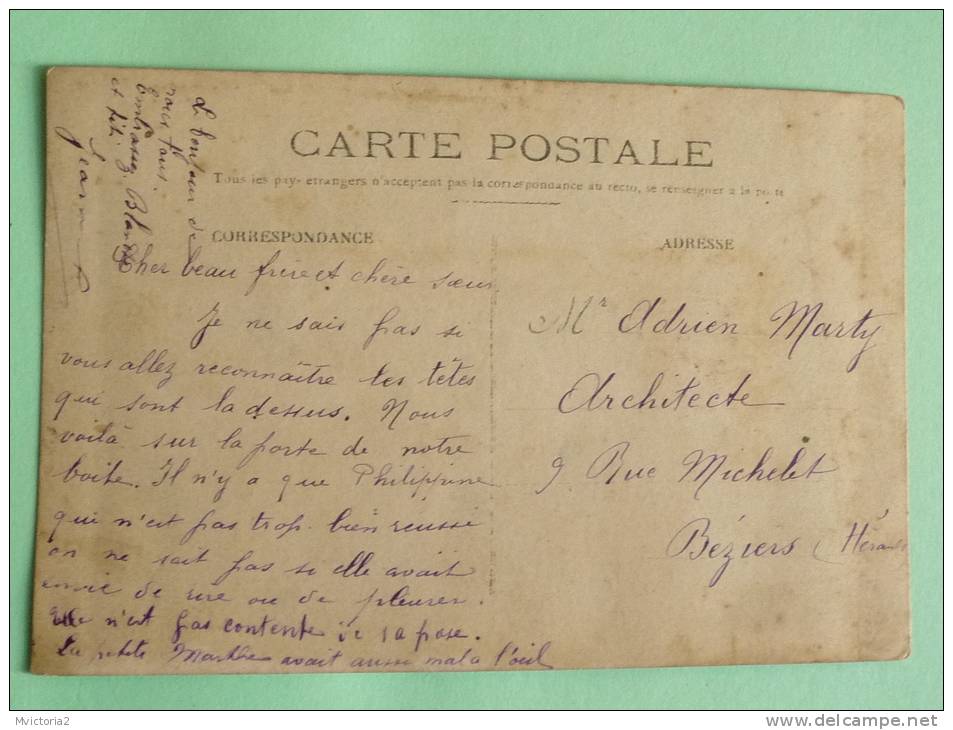 CARTE POSTALE
Tous les pays etrangers n'acceptent pas la correspondance au recto, se renseigner a la poste
CORRESPONDANCE
ADRESSE
Cher beau frère et chère sœur
Je ne sais pas si
vous allez reconnaître les têtes
qui sont la dessus. Nous
voilà sur la porte de notre
boite. Il n'y a que Philippine
qui n'est pas trop bien réussie
on ne sait pas si elle avait
envie de rire ou de pleurer.
Elle n'est pas contente de sa pose.
La petite Marthe avait aussi mal a l'œil
Le bonjour de
nous tous.
Embrassez Blanche
et
Jeanne
Mr Adrien Marty
Architecte
9 Rue Michelet
Béziers (Hérault
Mvictoria2
www.delcampe.net